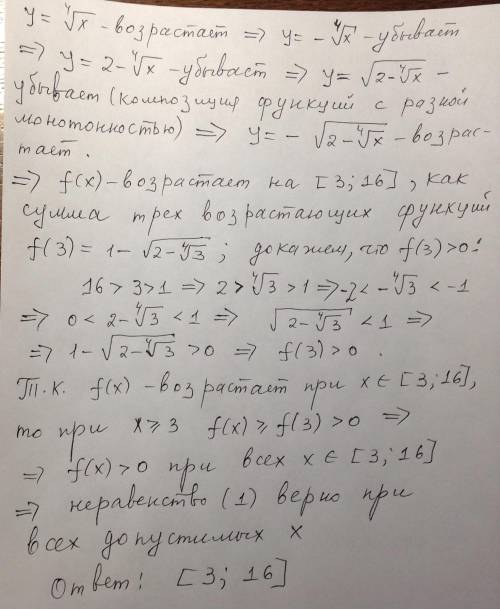 y = ∜x - возрастает ⇒ y = -∜x - убывает
⇒ y = 2-∜x - убывает ⇒ y = √(2-∜x) -
убывает (композиция функций с разной
монотонностью) ⇒ y = - √(2-∜x) - возрас-
тает.
⇒ f(x) - возрастает на [3; 16], как
сумма трех возрастающих функций
f(3) = 1 - √(2-∜3); докажем, что f(3)>0:
16 > 3 > 1 ⇒ 2 > ∜3 > 1 ⇒ -2 < -∜3 < -1
⇒ 0 < 2-∜3 < 1 ⇒ √(2-∜3) < 1 ⇒
⇒ 1-√(2-∜3) > 0 ⇒ f(3) > 0.
Т.к. f(x) - возрастает при x ∈ [3; 16],
то при x ⩾ 3 f(x) ⩾ f(3) > 0 ⇒
⇒ f(x) > 0 при всех x ∈ [3; 16]
⇒ неравенство (1) верно при
всех допустимых x
Ответ: [3; 16]